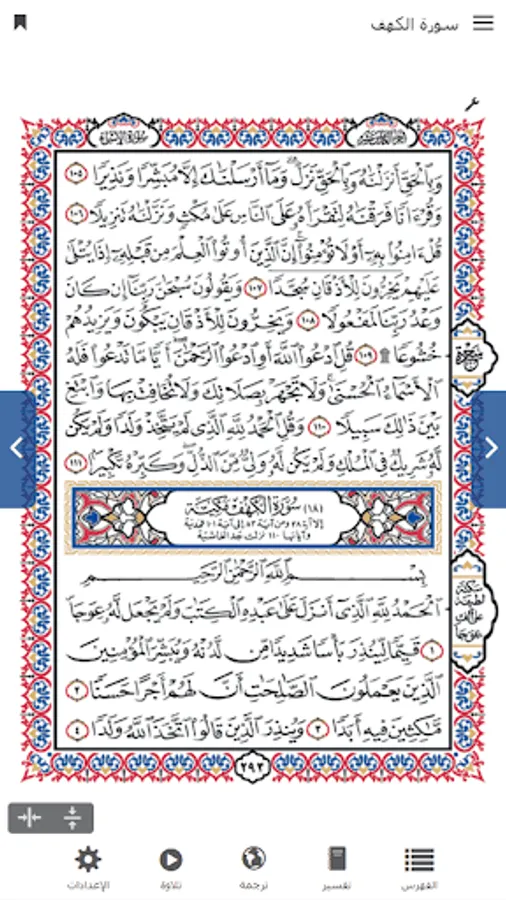 سورة الكهف
سورة الإسراء
الجزء الخامس عشر
وَبِالْحَقِّ أَنزَلْنَاهُ وَبِالْحَقِّ نَزَلَ وَمَا أَرْسَلْنَاكَ إِلَّا مُبَشِّرًا وَنَذِيرًا ١٠٥
وَقُرْءَانًا فَرَقْنَاهُ لِتَقْرَأَهُ عَلَى النَّاسِ عَلَىٰ مُكْثٍ وَنَزَّلْنَاهُ تَنزِيلًا ١٠٦
قُلْ ءَامِنُوا بِهِ أَوْ لَا تُؤْمِنُوا إِنَّ الَّذِينَ أُوتُوا الْعِلْمَ مِن قَبْلِهِ إِذَا يُتْلَىٰ
عَلَيْهِمْ يَخِرُّونَ لِلْأَذْقَانِ سُجَّدًا ١٠٧ وَيَقُولُونَ سُبْحَانَ رَبِّنَا إِن كَانَ
وَعْدُ رَبِّنَا لَمَفْعُولًا ١٠٨ وَيَخِرُّونَ لِلْأَذْقَانِ يَبْكُونَ وَيَزِيدُهُمْ
خُشُوعًا ۩ ١٠٩ قُلِ ادْعُوا اللَّهَ أَوِ ادْعُوا الرَّحْمَٰنَ أَيًّا مَا تَدْعُوا فَلَهُ
الْأَسْمَاءُ الْحُسْنَىٰ وَلَا تَجْهَرْ بِصَلَاتِكَ وَلَا تُخَافِتْ بِهَا وَابْتَغِ
بَيْنَ ذَٰلِكَ سَبِيلًا ١١٠ وَقُلِ الْحَمْدُ لِلَّهِ الَّذِي لَمْ يَتَّخِذْ وَلَدًا وَلَمْ يَكُن
لَّهُ شَرِيكٌ فِي الْمُلْكِ وَلَمْ يَكُن لَّهُ وَلِيٌّ مِّنَ الذُّلِّ وَكَبِّرْهُ تَكْبِيرًا ١١١
سجدة
(١٨) سُورَةُ الْكَهْفِ مَكِّيَّة
إلا آية ٢٨ ومن آية ٨٣ إلى آية ١٠١ فمدنية
وآياتها ١١٠ نزلت بعد الغاشية
بِسْمِ اللَّهِ الرَّحْمَٰنِ الرَّحِيمِ
الْحَمْدُ لِلَّهِ الَّذِي أَنزَلَ عَلَىٰ عَبْدِهِ الْكِتَابَ وَلَمْ يَجْعَل لَّهُ عِوَجًا
١ قَيِّمًا لِّيُنذِرَ بَأْسًا شَدِيدًا مِّن لَّدُنْهُ وَيُبَشِّرَ الْمُؤْمِنِينَ
الَّذِينَ يَعْمَلُونَ الصَّالِحَاتِ أَنَّ لَهُمْ أَجْرًا حَسَنًا ٢
مَّاكِثِينَ فِيهِ أَبَدًا ٣ وَيُنذِرَ الَّذِينَ قَالُوا اتَّخَذَ اللَّهُ وَلَدًا ٤
سكتة
لطيفة
على ألف
عوجا
٢٩٣
الفهرس
تفسير
ترجمة
تلاوة
الإعدادات